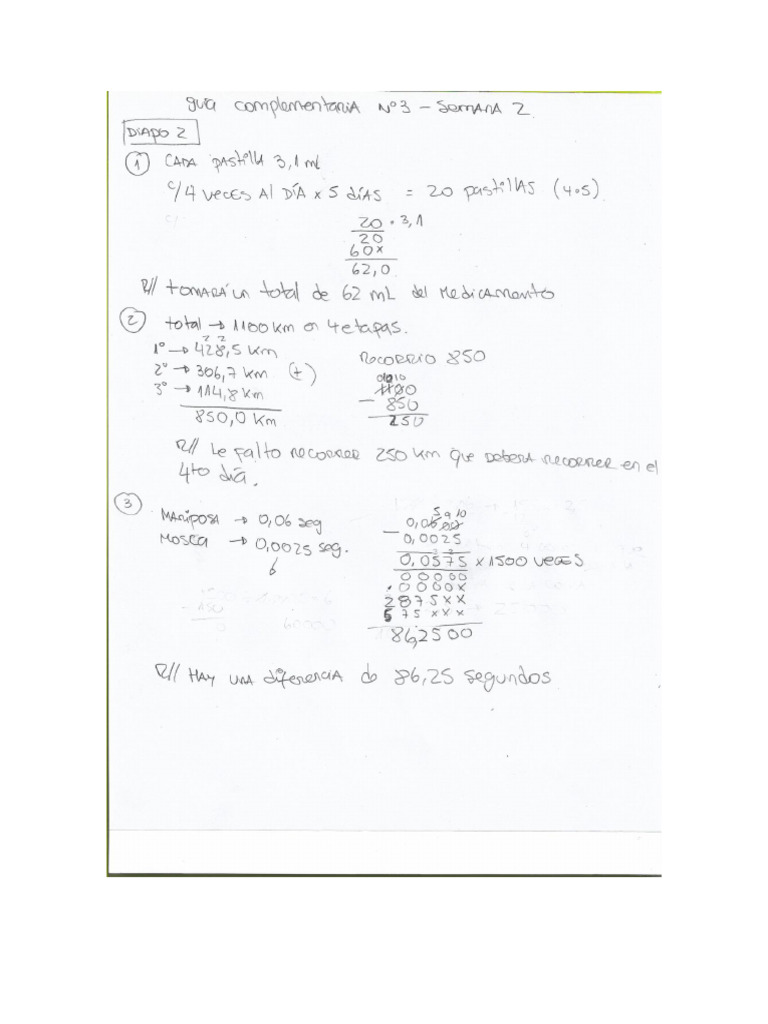 guía complementaria Nº3 - Semana 2.
DIAPO 2
① CADA pastilla 3,1 ml
c/4 veces Al DÍA x 5 DÍAS = 20 pastillas (4·5).
20 · 3,1
20
60x
62,0
R// tomará un total de 62 mL del Medicamento
② total → 1100 km en 4 etapas.
1º → 428,5 km
2º → 306,7 km (+)
3º → 114,8 km
850,0 km
RECORRIO 850
1100
- 850
250
R// Le falto recorrer 250 km que deberá recorrer en el
4to día.
③ MARIPOSA → 0,06 seg
MOSCA → 0,0025 seg.
0,0600
- 0,0025
0,0575 x 1500 veces
00000
0000x
2875xx
575xxx
86,2500
R// HAY UNA diferencia de 86,25 segundos